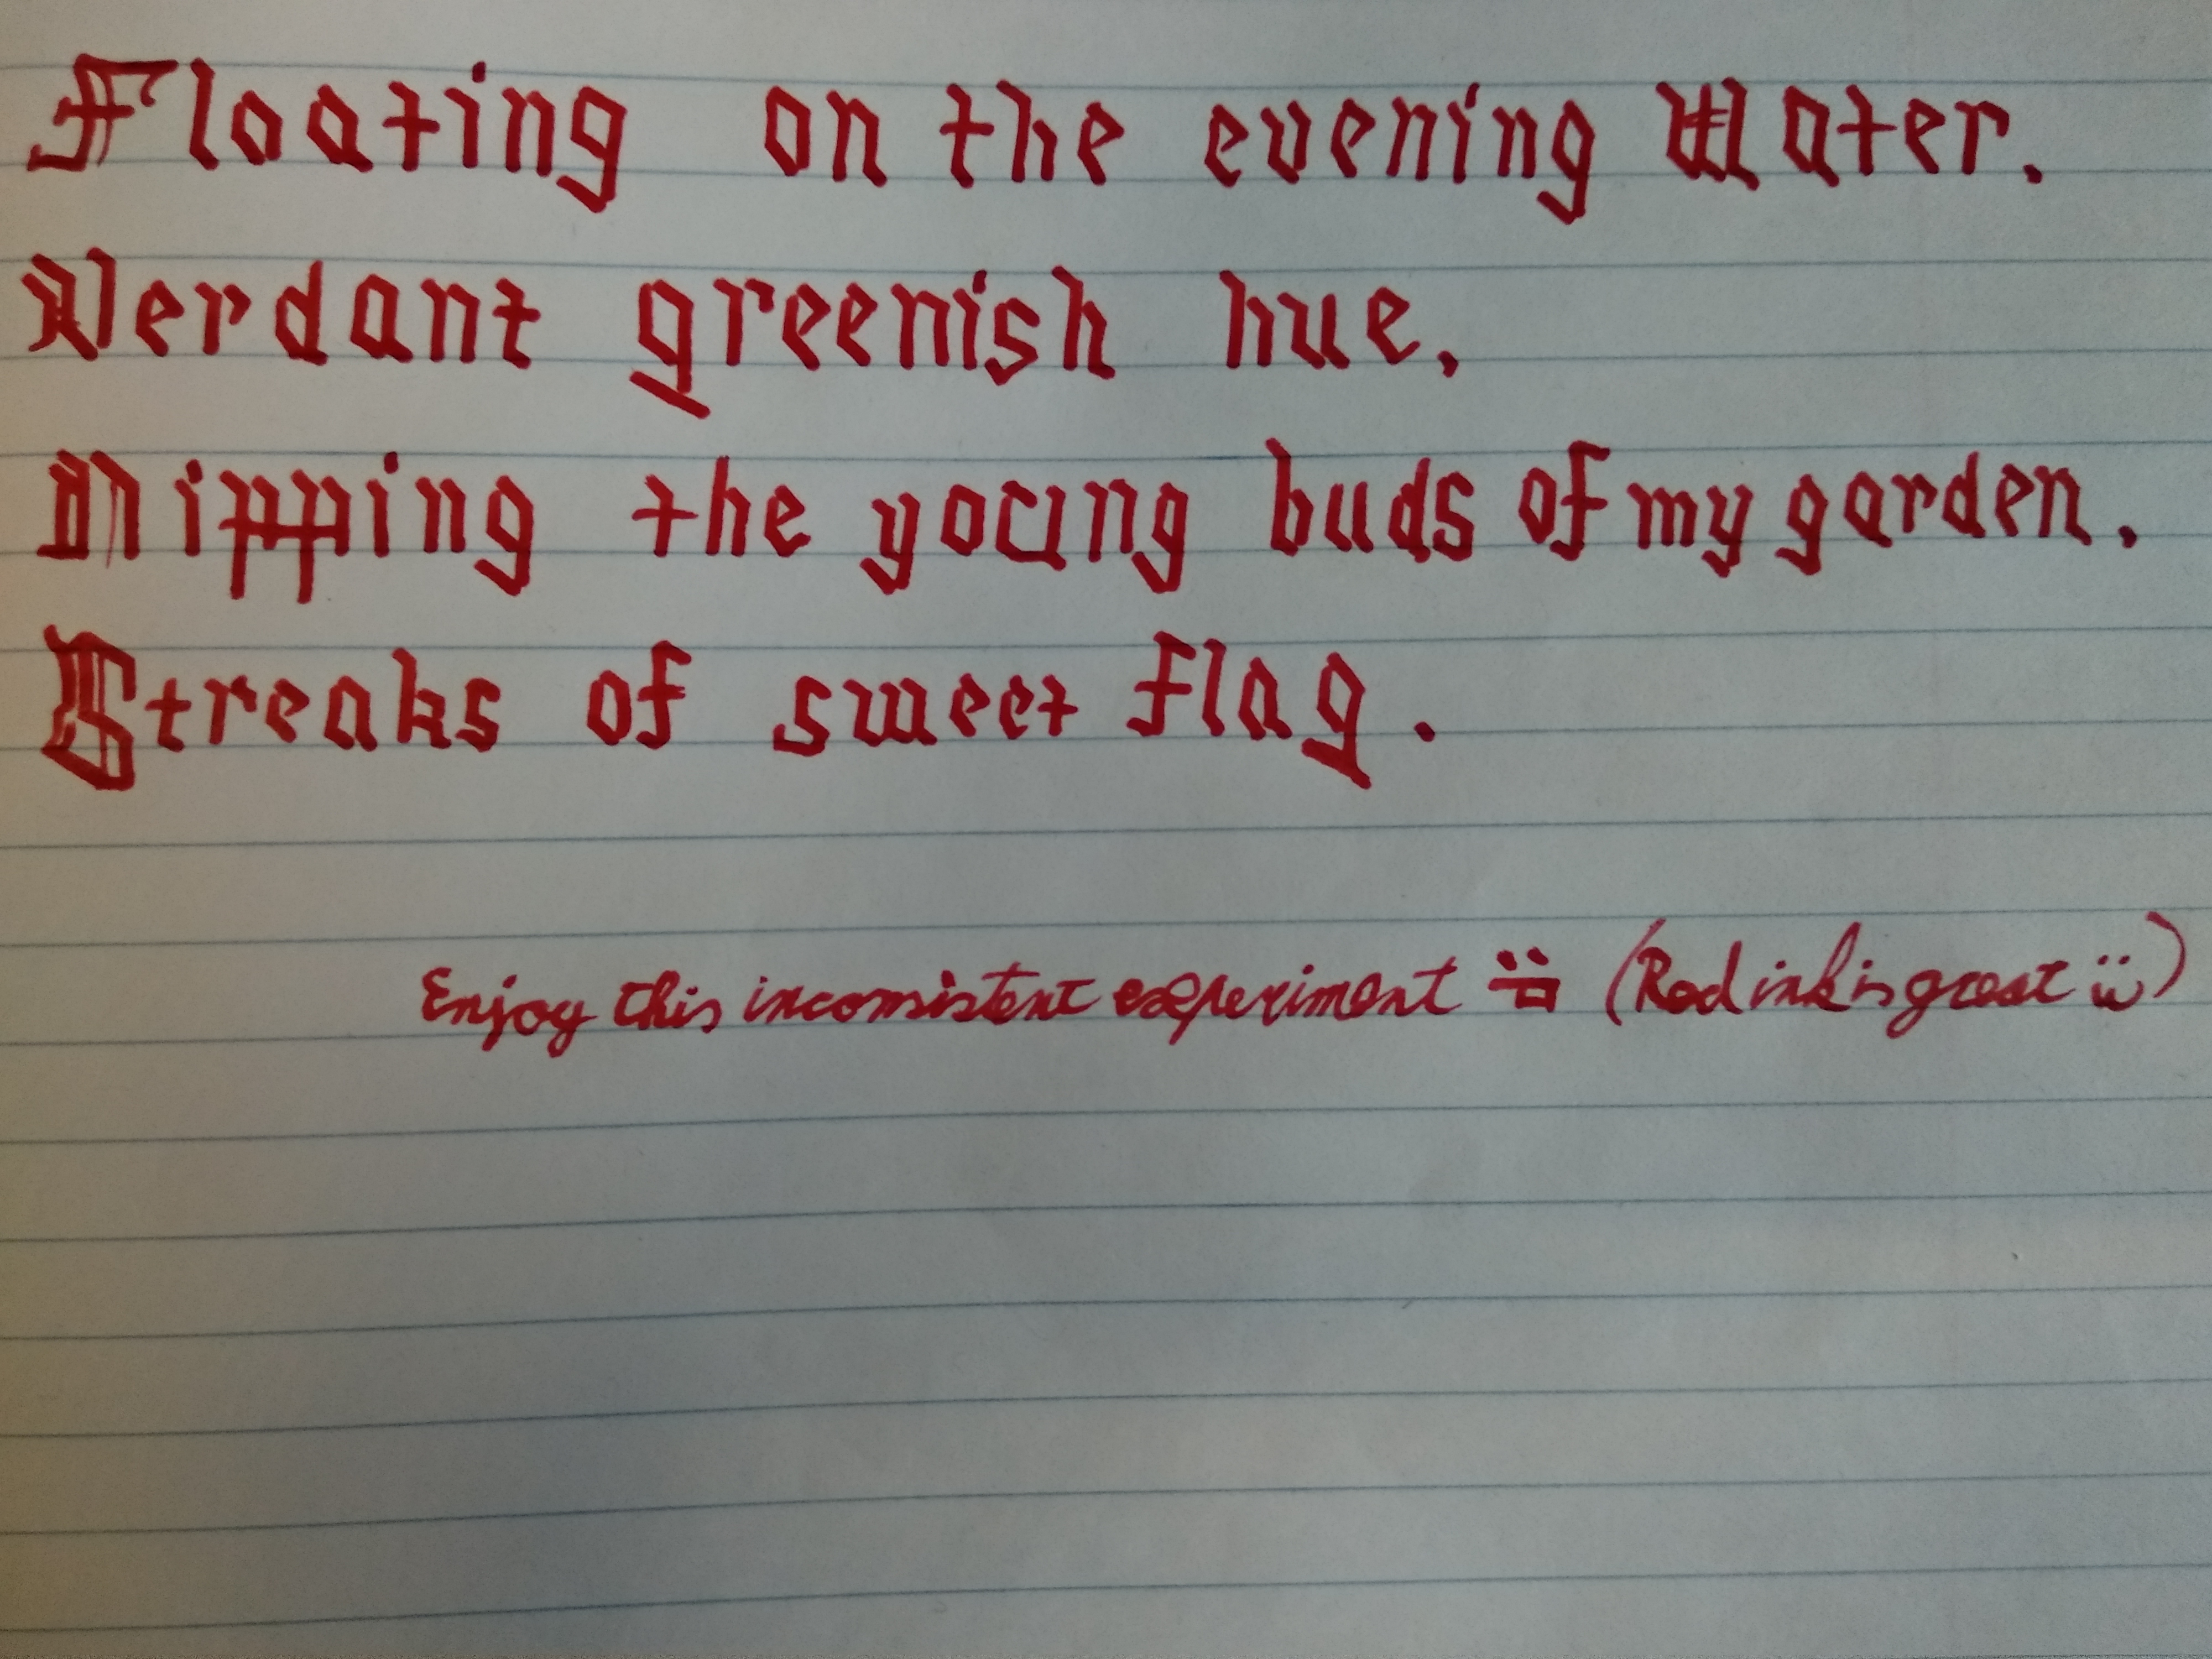 Floating on the evening Water.
Verdant greenish hue,
Nipping the young buds of my garden.
Streaks of sweet flag.
Enjoy this inconsistent experiment (Red ink is great ü)